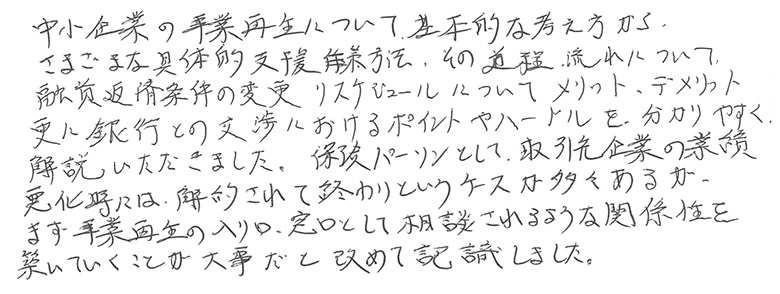 中小企業の事業再生について、基本的な考え方から、
さまざまな具体的支援解決方法、その道程、流れについて、
融資返済条件の変更 リスケジュールについて メリット、デメリット
更に銀行との交渉におけるポイントやハードルを、分かりやすく、
解説いただきました。保険パーソンとして、取引先企業の業績
悪化時には、解約されて終わりというケースが多々あるが、
まず事業再生の入り口、窓口として相談されるような関係性を
築いていくことが大事だと改めて記識しました。